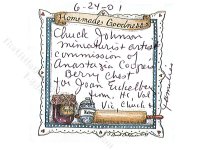 6-24-01
Homemade Goodness
Chuck Johnson
miniaturist artist
commission of
Anastazia Cooper
Berry Chest
for Joan Euckelber
from, HC Val
Via Chuck &